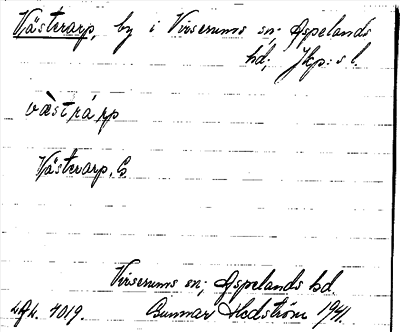 Västerarp, by i Virserums sn; Aspelands
hd; Jkp:s l.
væstrárp
Västerarp, G
Virserums sn; Aspelands hd
Gunnar Hedström 1941.